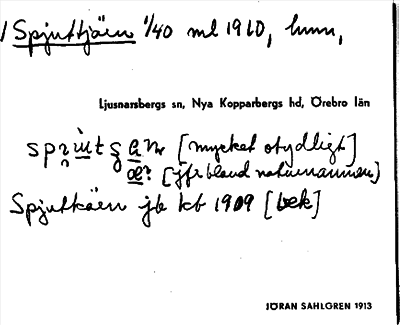 Spjuttjäen 1/40 ml 1910,
Ljusnarsbergs sn, Nya Kopparbergs hd, Örebro län
[mycket otydligt]
æ? [jfr bland naturnamnen]
Spjutkäen jb kb 1909 [bek]
JÖRAN SAHLGREN 1913